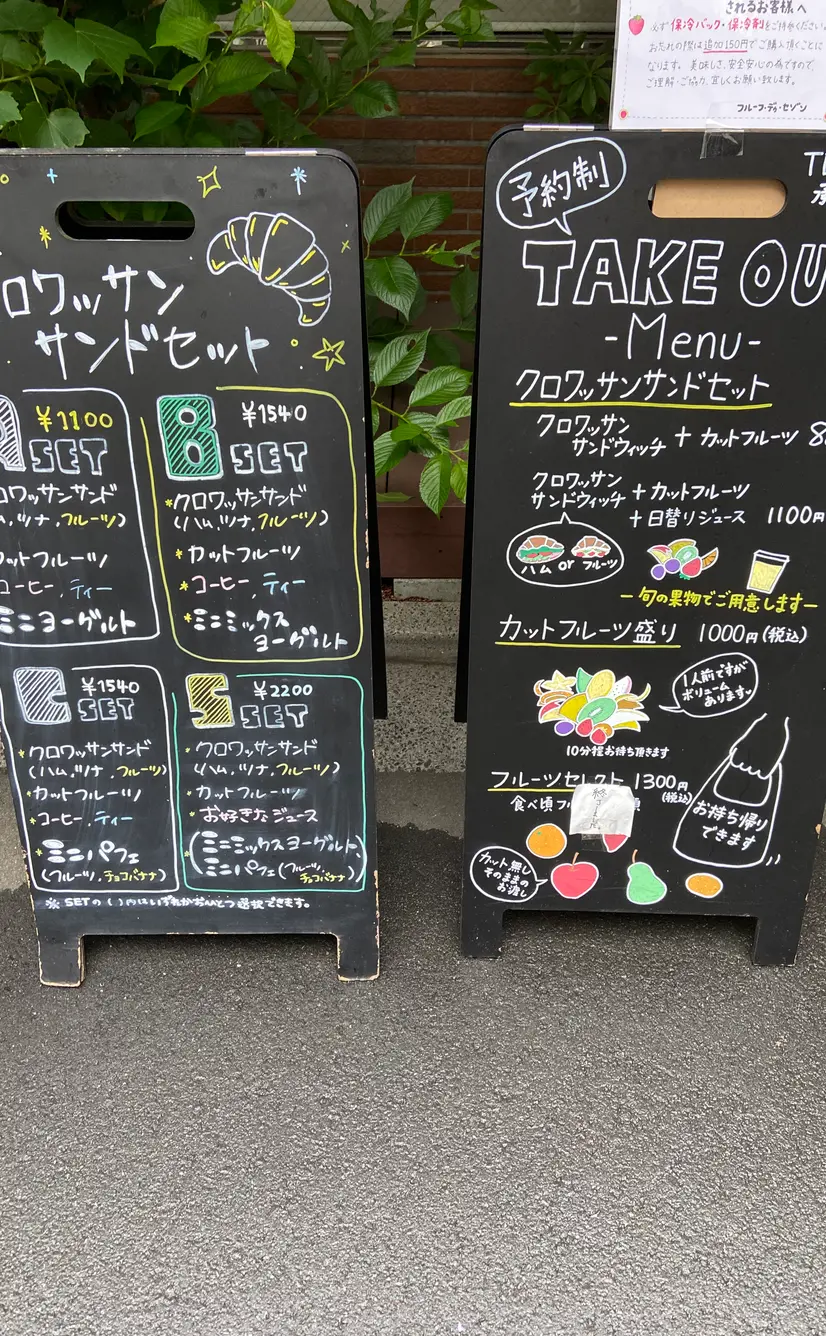 されるお客様へ
必ず保冷バック・保冷剤をご持参ください。
お忘れの際は追加150円でご購入頂くことに
なります。美味しさ、安全安心の為ですので、
ご理解・ご協力、宜しくお願い致します。
フルーフ・デゥ・セゾン
ロワッサン
サンドセット
¥1100
SET
ロワッサンサンド
ム,ツナ,フルーツ)
ットフルーツ
コーヒー,ティー
ミニヨーグルト
¥1540
B SET
*クロワッサンサンド
(ハム,ツナ,フルーツ)
*カットフルーツ
*コーヒー,ティー
*ミニミックス
ヨーグルト
¥1540
C SET
*クロワッサンサンド
(ハム,ツナ,フルーツ)
*カットフルーツ
*コーヒー,ティー
*ミニパフェ
(フルーツ,チョコバナナ)
¥2200
S SET
*クロワッサンサンド
(ハム,ツナ,フルーツ)
*カットフルーツ
*お好きなジュース
*(ミニミックスヨーグルト,
ミニパフェ(フルーツ,チョコバナナ))
※ SETの( )内はいずれかおひとつ選択できます。
予約制
TAKE OU
-Menu-
クロワッサンサンドセット
クロワッサン
サンドウィッチ + カットフルーツ 8
クロワッサン
サンドウィッチ +カットフルーツ
+日替りジュース 1100円
ハム or フルーツ
ー旬の果物でご用意しますー
カットフルーツ盛り 1000円(税込)
1人前ですが
ボリューム
あります♥
10分程お待ち頂きます
フルーツセレクト 1300円
(税込)
食べ頃フ
お持ち帰り
できます
カット無し
そのままの
お渡し